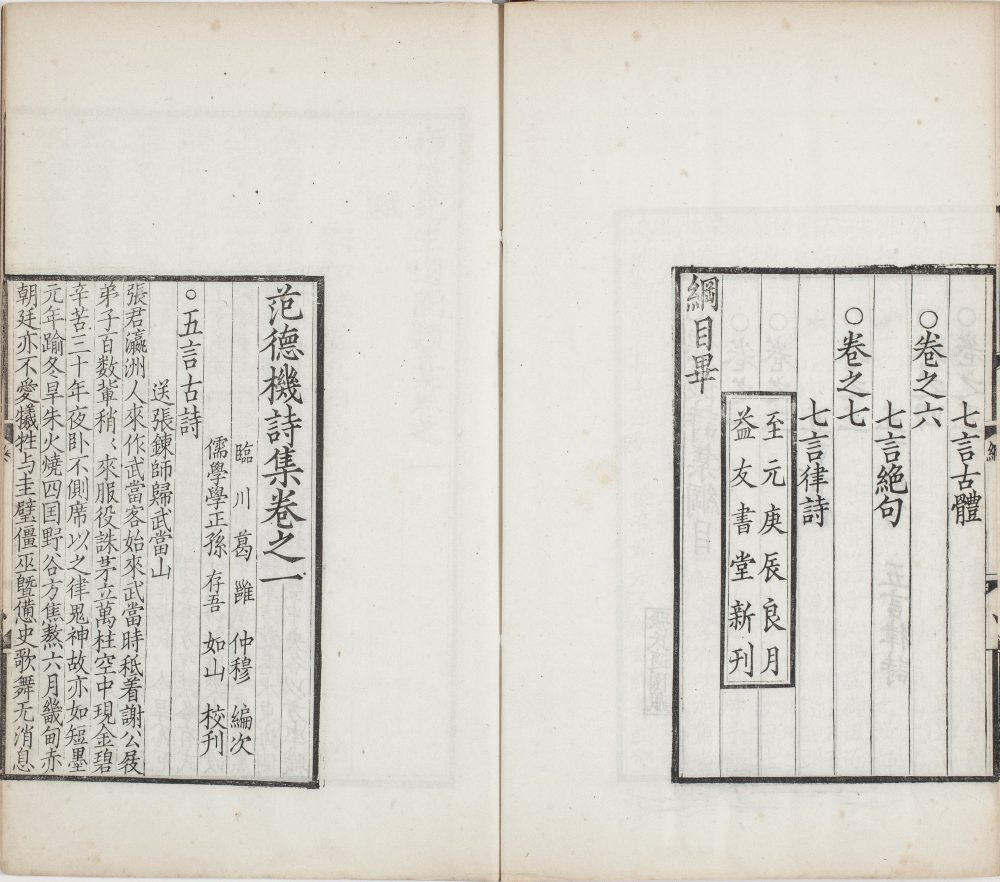 七言古體
○卷之六
七言絕句
○卷之七
七言律詩
至元庚辰良月
益友書堂新刊
綱目畢
范德機詩集卷之一
臨川葛雝仲穆編次
儒學學正孫存吾如山校刊
○五言古詩
送張鍊師歸武當山
張君瀛洲人來作武當客始來武當時秪着謝公屐
弟子百数輩稍〻來服役誅茅立萬柱空中現金碧
辛苦三十年夜卧不側席以之律鬼神故亦如短墨
元年踰冬旱朱火燒四囯野谷方焦熬六月畿甸赤
朝廷亦不愛犧牲与圭璧僵巫曁憊史歌舞无消息